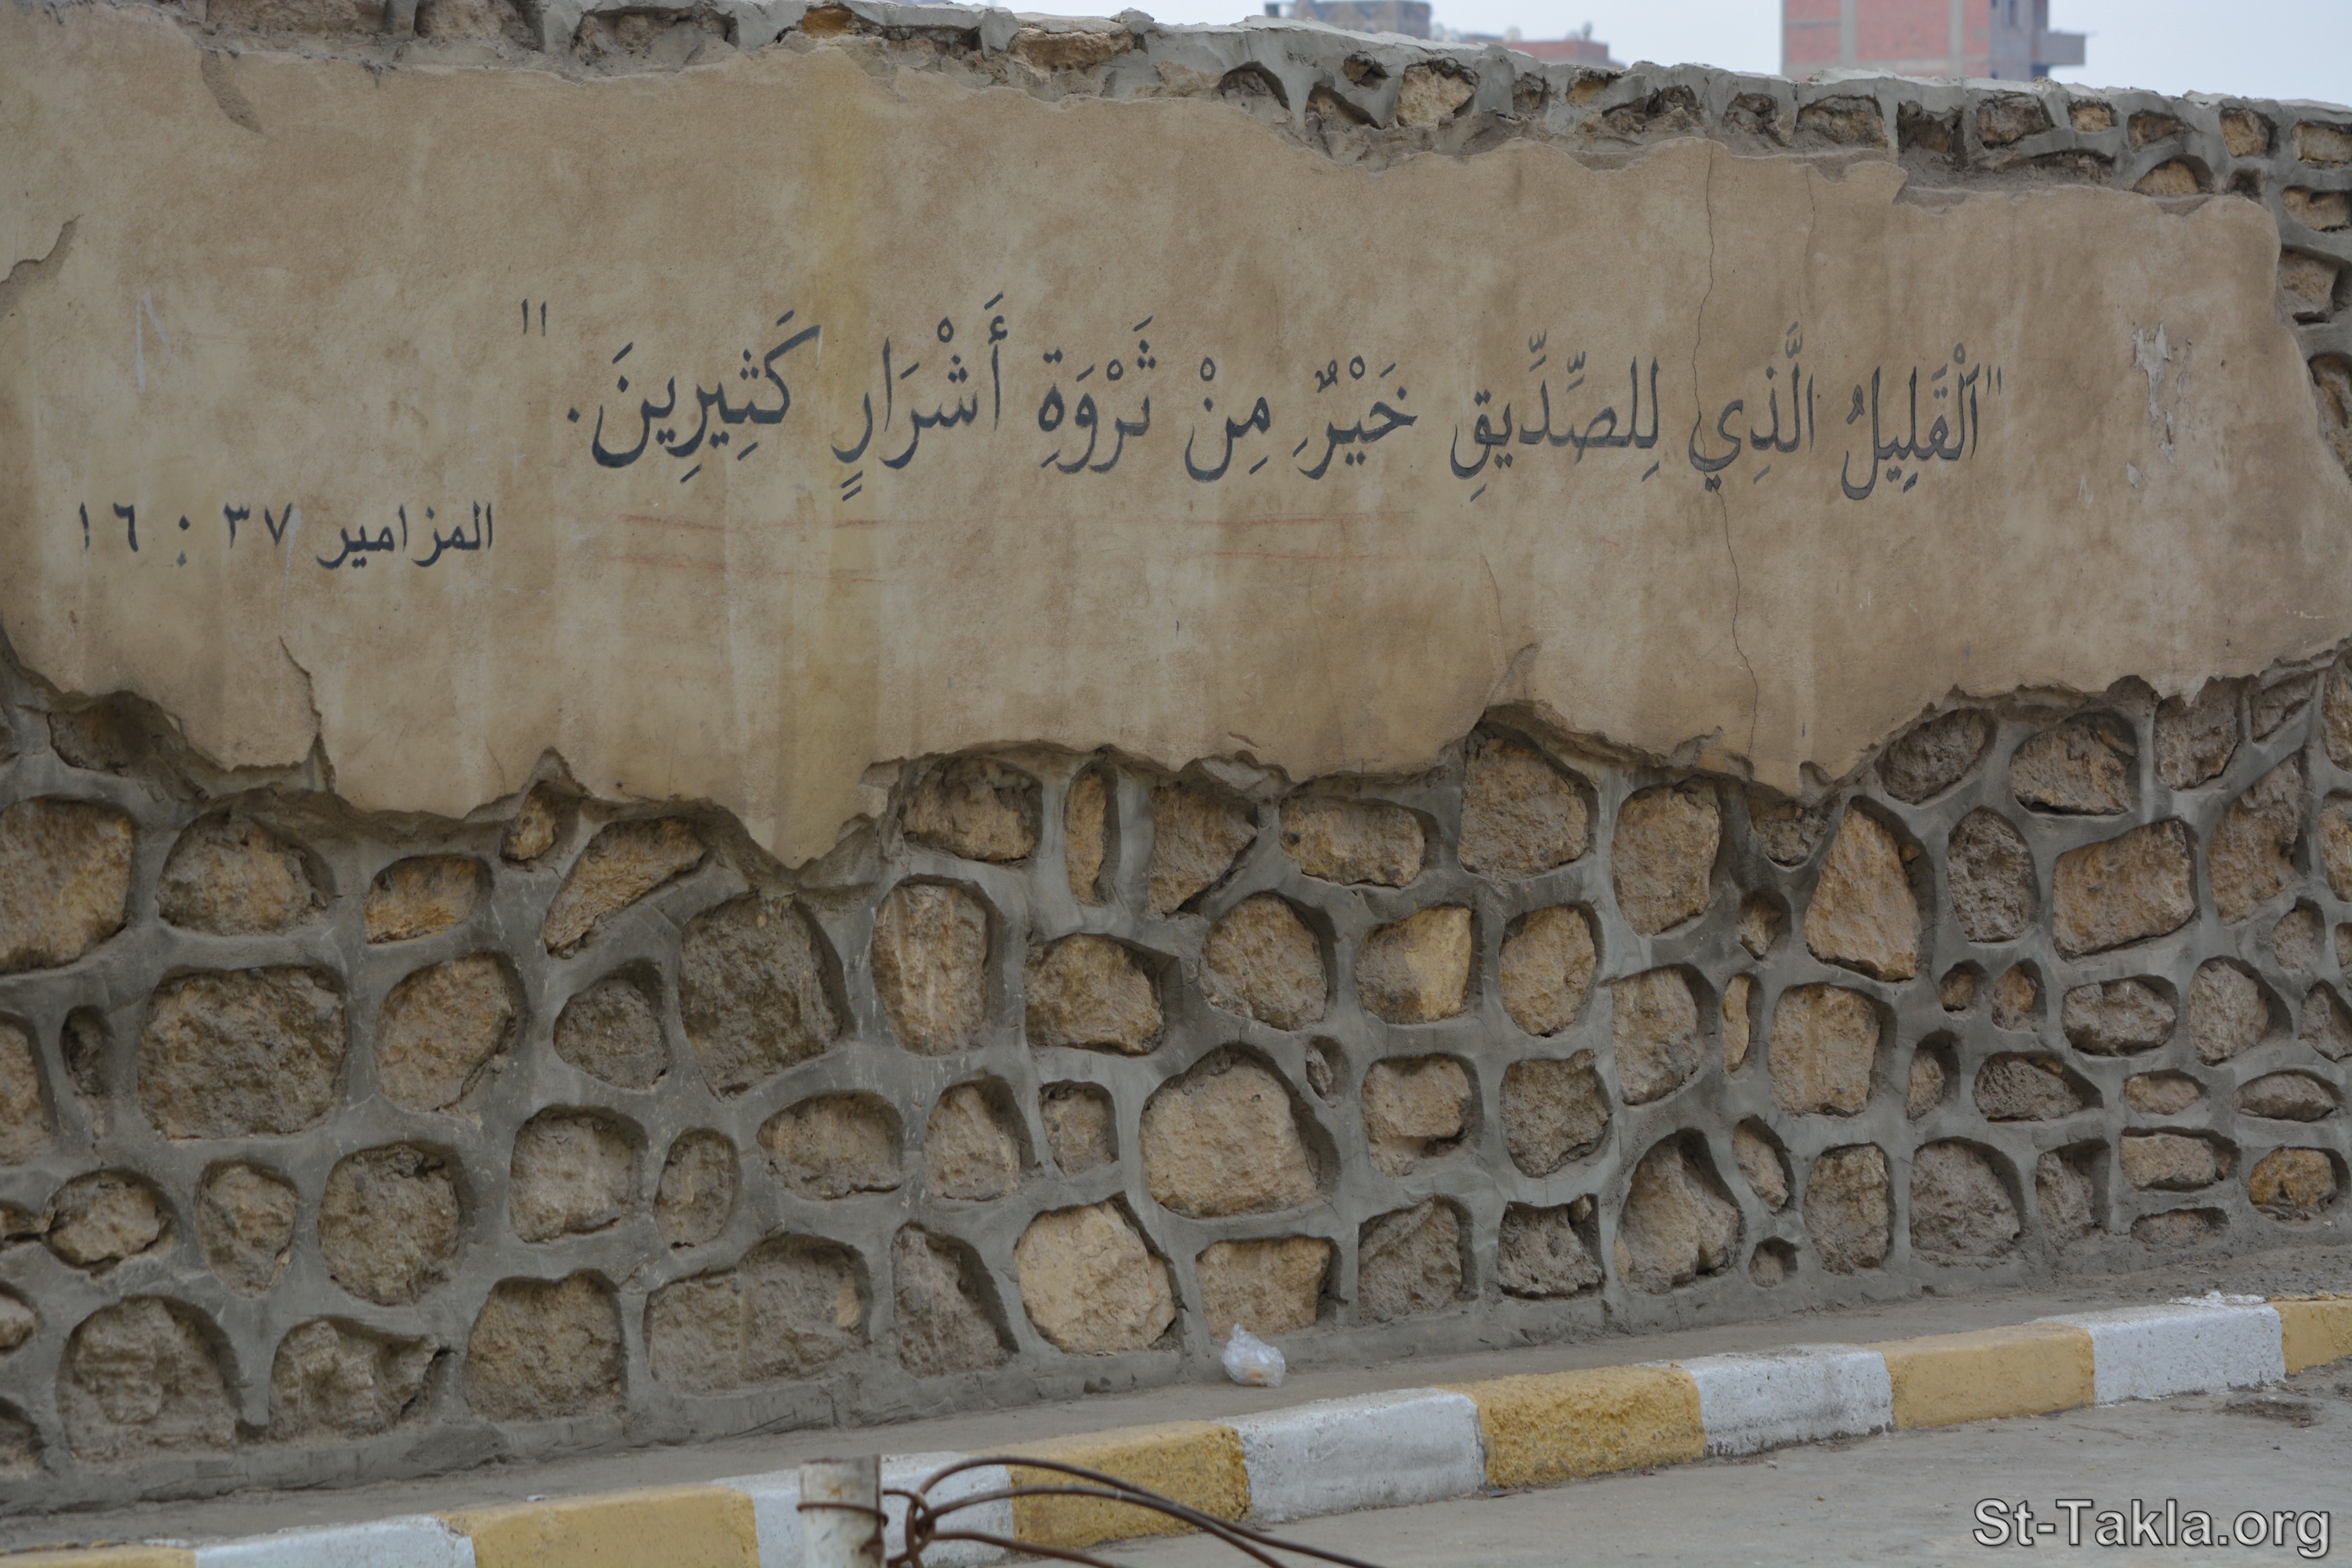 "اَلْقَلِيلُ الَّذِي لِلصِّدِّيقِ خَيْرٌ مِنْ ثَرْوَةِ أَشْرَارٍ كَثِيرِينَ."
المزامير ٣٧ : ١٦
St-Takla.org